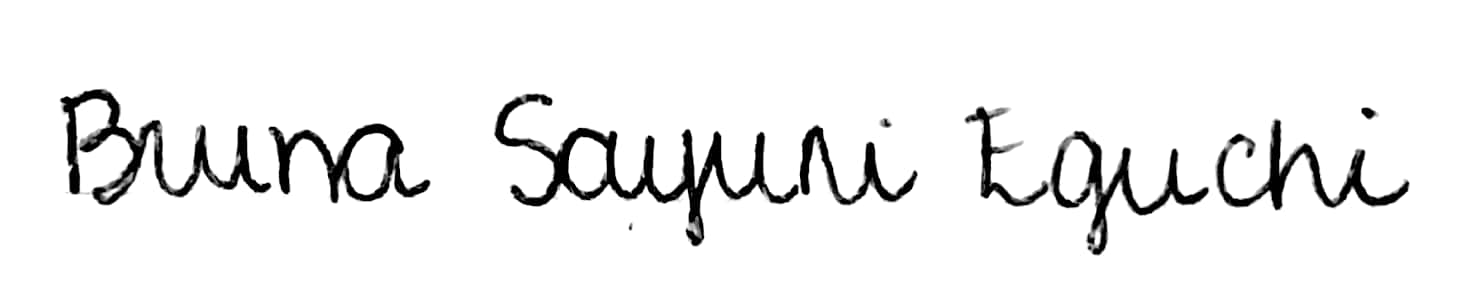 Bruna Sayuri Eguchi